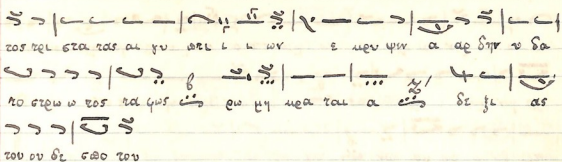 τος τρι στα τας αι γυ πτι ι ι ων ε κρυ ψιν α αρ δην υ δα
το στρω ω τος τα φως ρω μη κρα ται α δε ξι ας
του ου δε σπο του